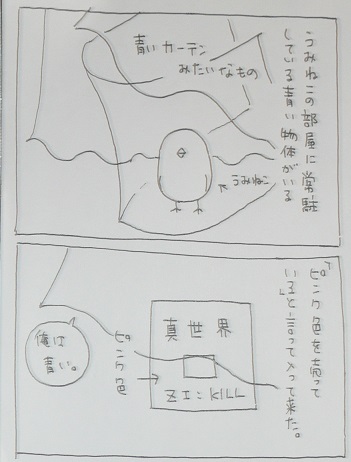 うみねこの部屋に常駐
している青い物体がいる
青いカーテン
みたいなもの
うみねこ
「ピンク色を売って
いる」と言ってやって来た。
真世界
ZI:KILL
ピンク色
俺は
青い。